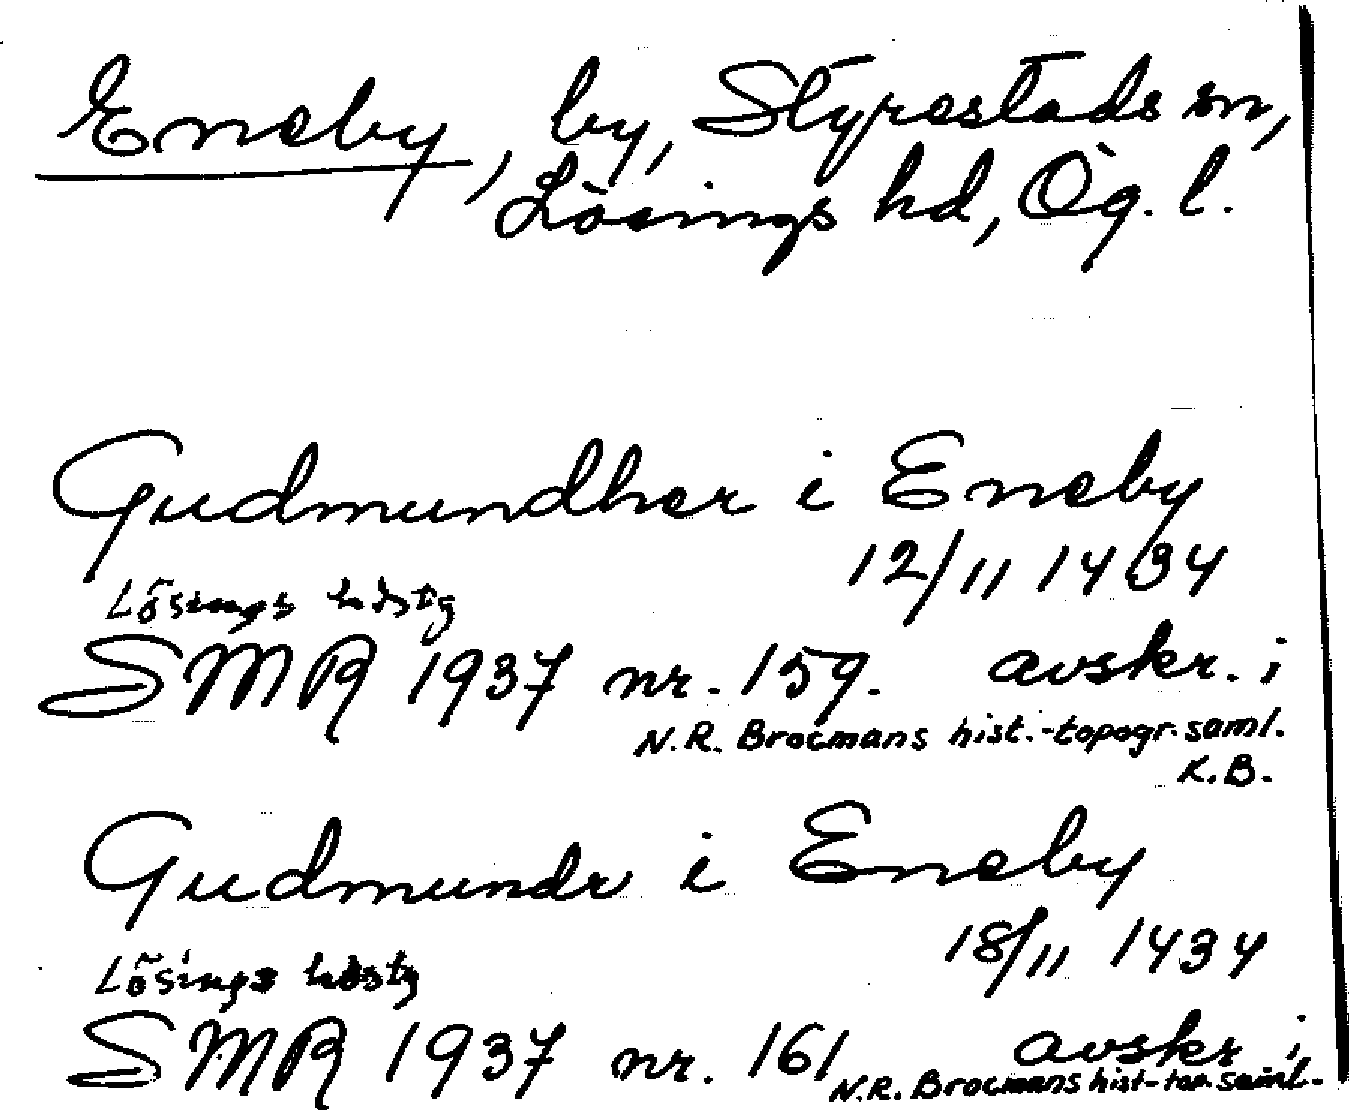 Eneby, by, Styrestads sn,
Lösings hd, Ög. l.
Gudmundher i Eneby
12/11 1434
Lösings hdstg
SMR 1937 nr. 159. avskr. i
N.R. Brocmans hist.-topogr. saml.
K.B.
Gudmundr i Eneby
18/11 1434
Lösings hdstg
SMR 1937 nr. 161 avskr i
N.R. Brocmans hist-top. saml.